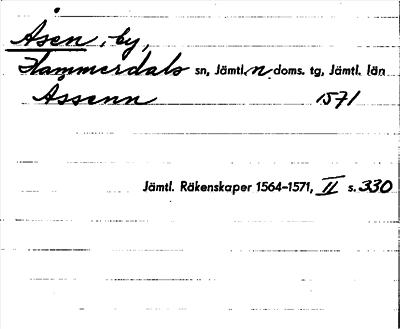 Åsen, by,
Hammerdals sn, Jämtl. n. doms. tg, Jämtl. län
Assenn 1571
Jämtl. Räkenskaper 1564-1571, II s. 330